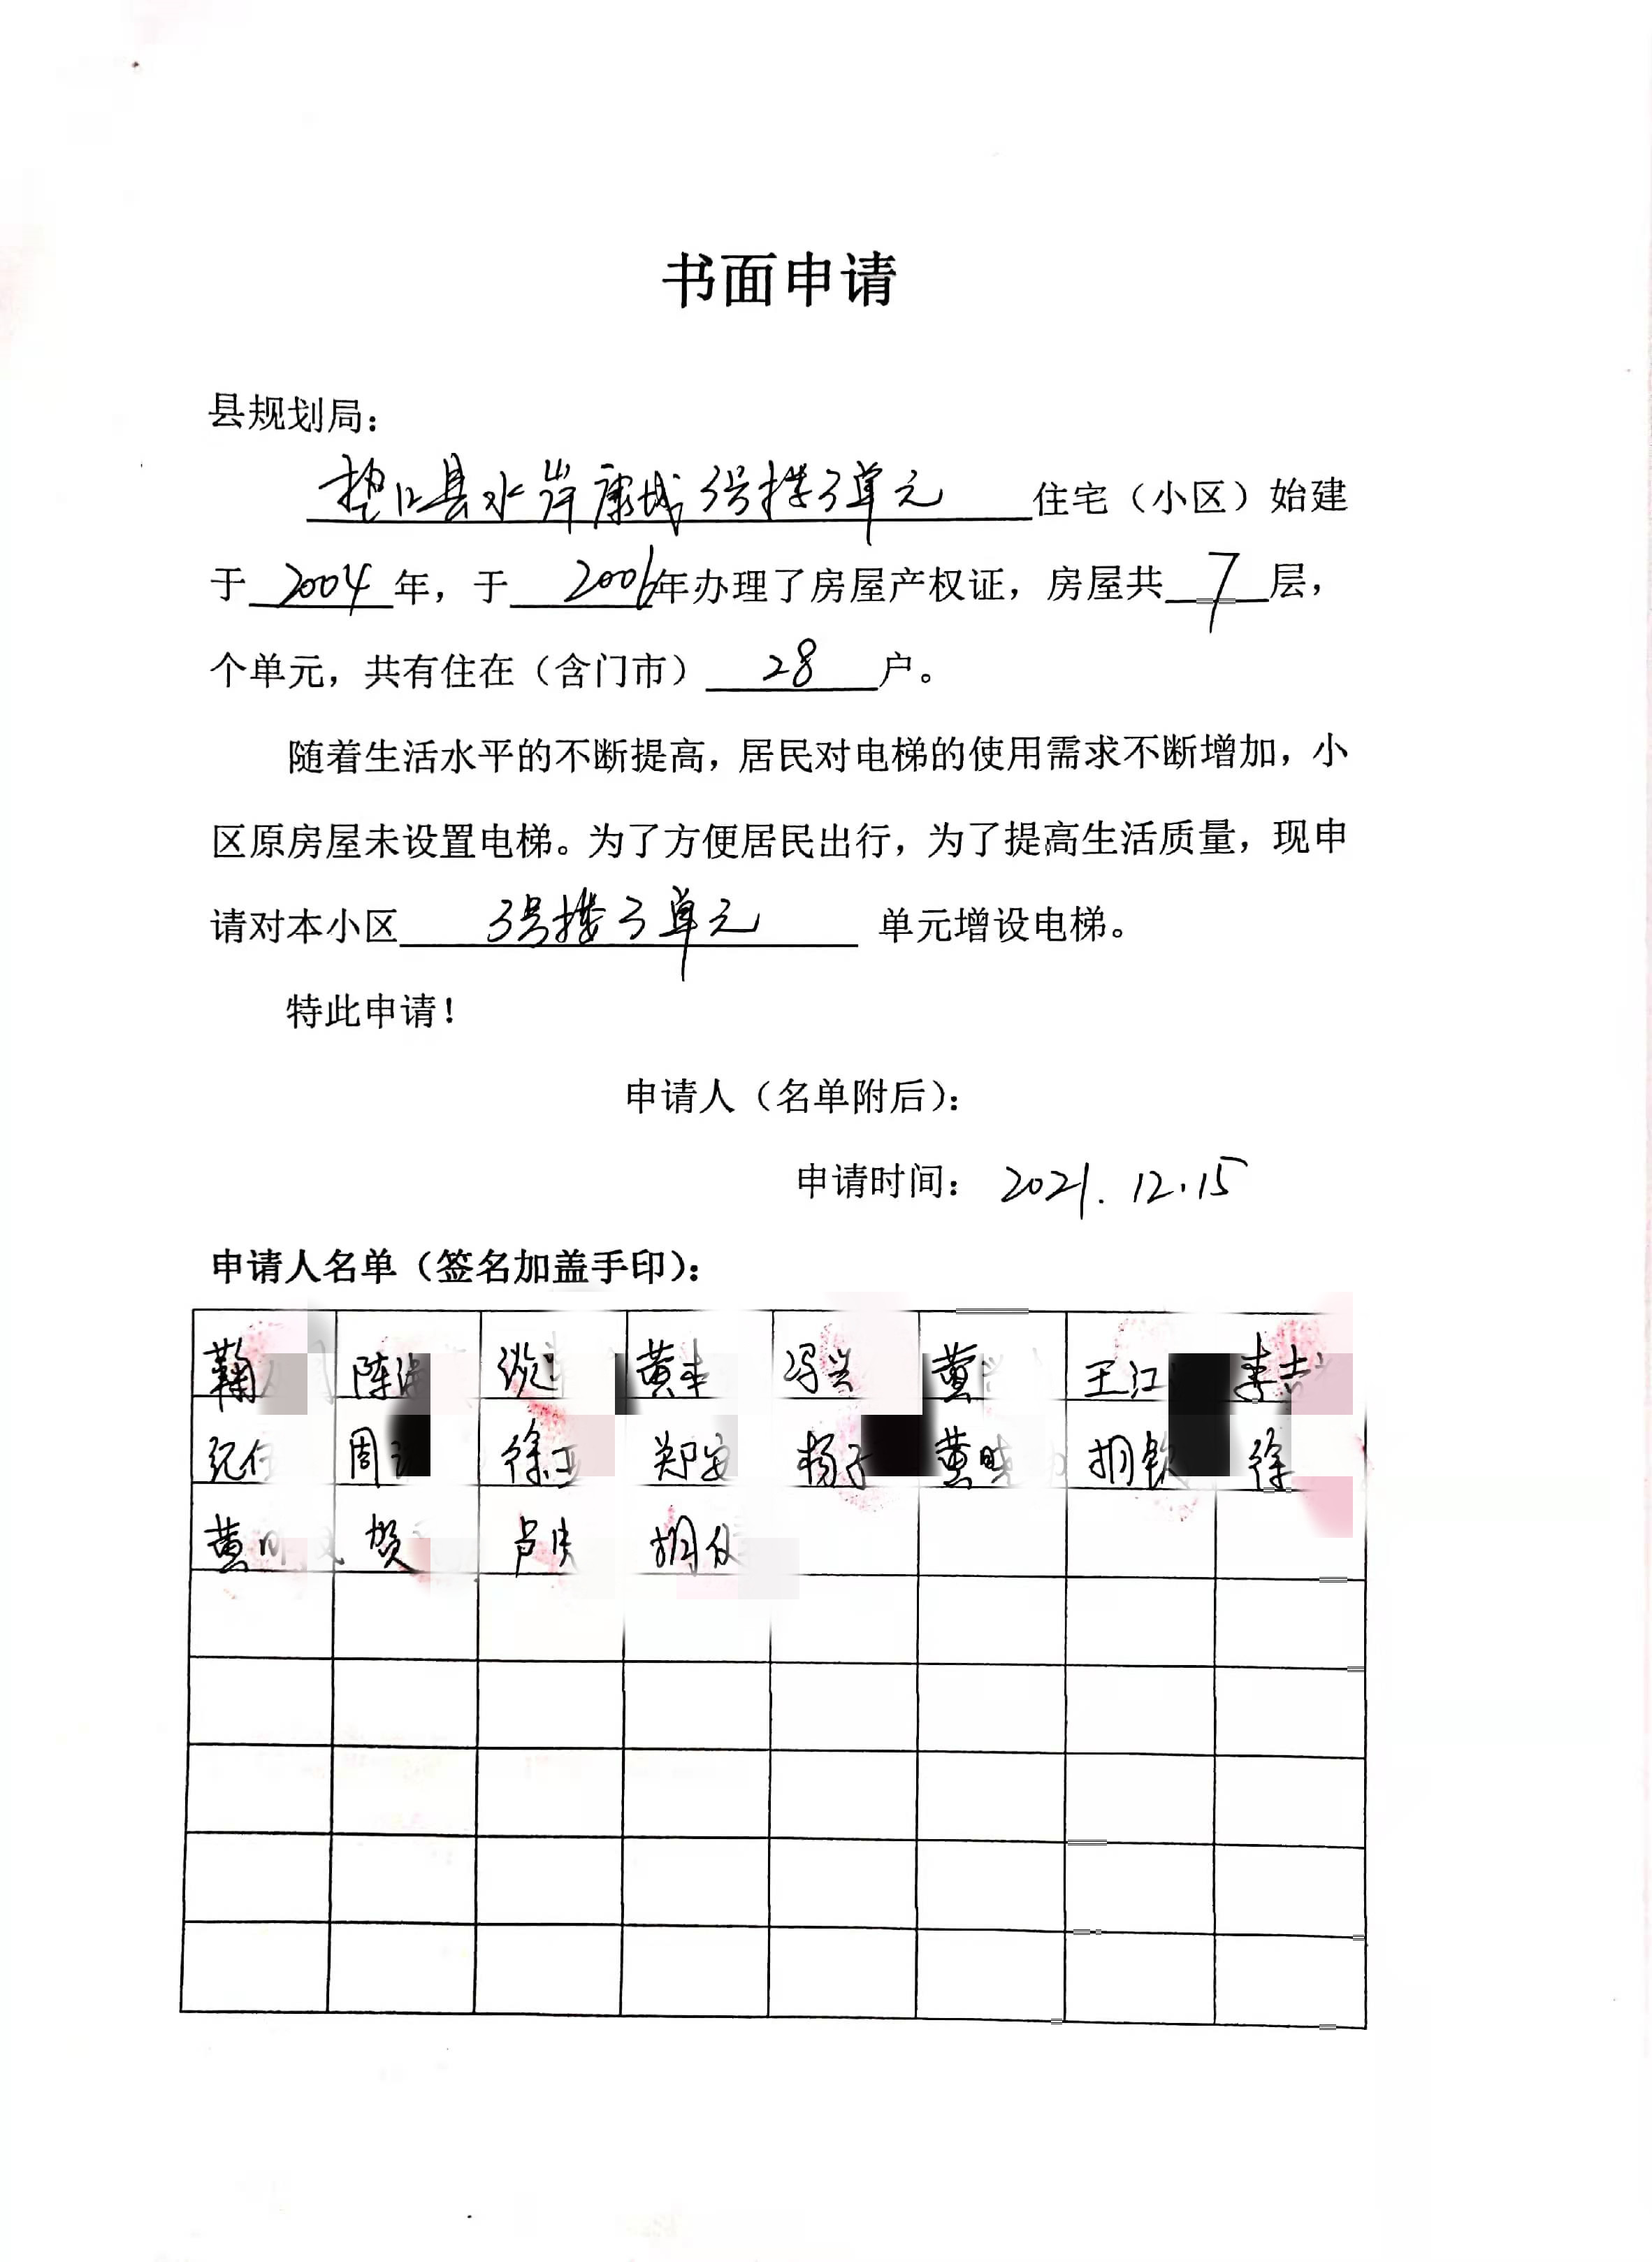 书面申请
县规划局：
垫江县水岸康城3号楼3单元住宅（小区）始建
于2004年，于2006年办理了房屋产权证，房屋共7层，
个单元，共有住在（含门市）28户。
随着生活水平的不断提高，居民对电梯的使用需求不断增加，小
区原房屋未设置电梯。为了方便居民出行，为了提高生活质量，现申
请对本小区3号楼3单元 单元增设电梯。
特此申请！
申请人（名单附后）：
申请时间：2021.12.15
申请人名单（签名加盖手印）：
陈 黄 冯兴 董 王江 李吉
纪 周 徐 郑安 杨子 黄晓 胡 徐
黄 贺 卢 胡